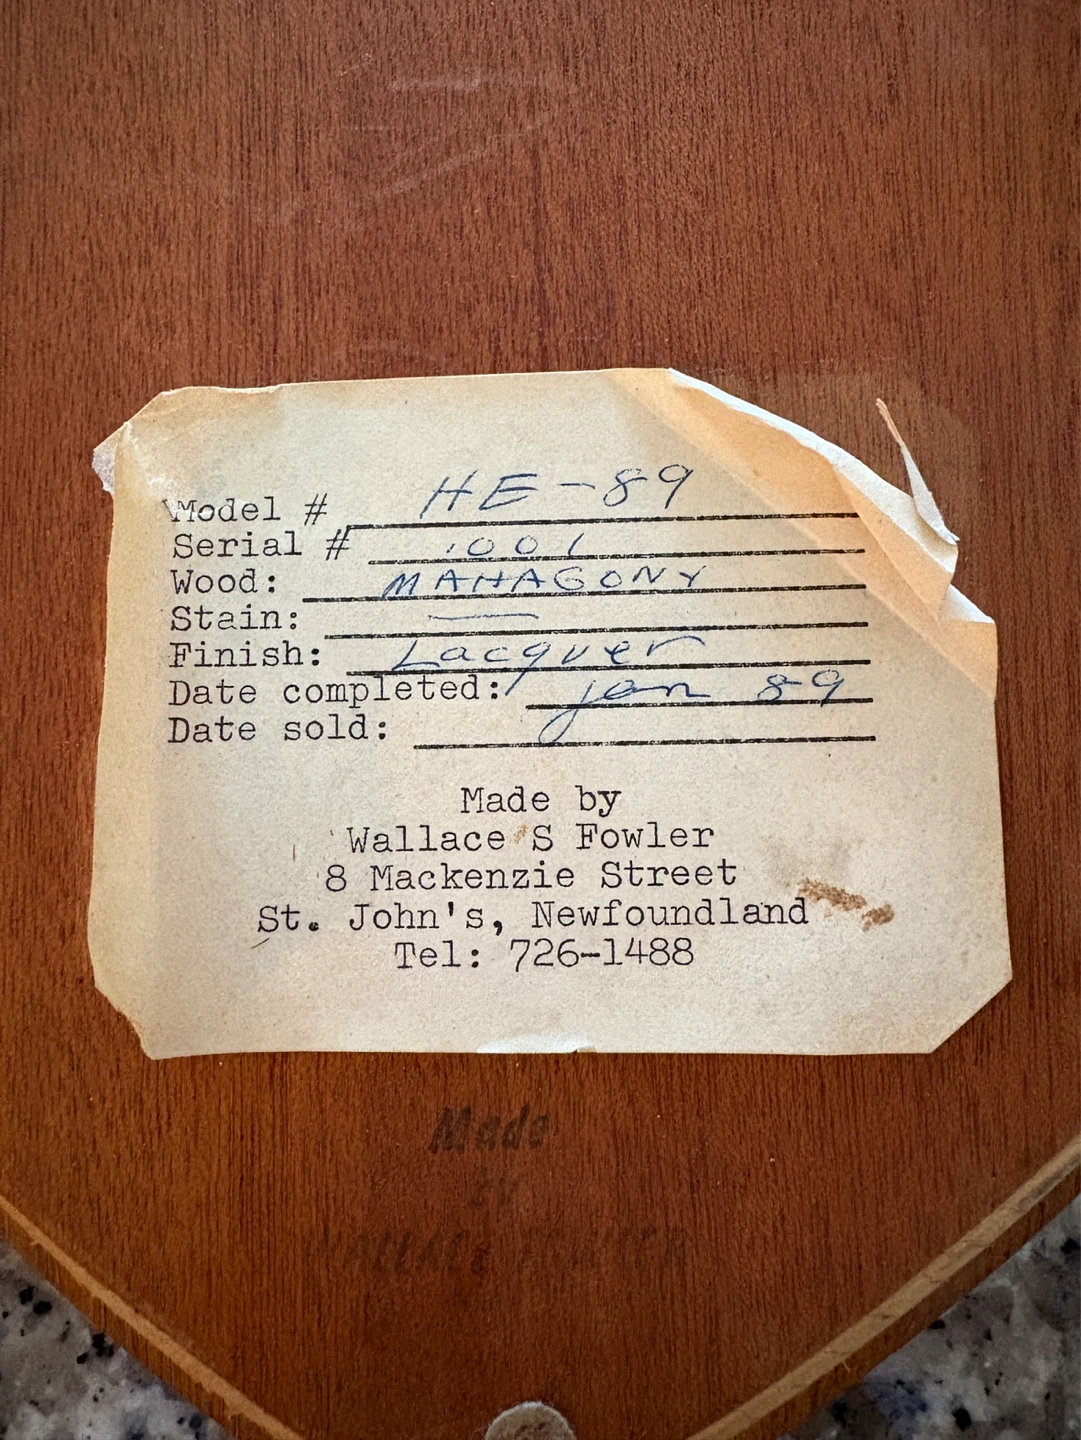 Model # HE-89
Serial # 1001
Wood: MAHAGONY
Stain: —
Finish: Lacquer
Date completed: Jan 89
Date sold:
Made by
Wallace S Fowler
8 Mackenzie Street
St. John's, Newfoundland
Tel: 726-1488
Made
BY
WALLACE FOWLER